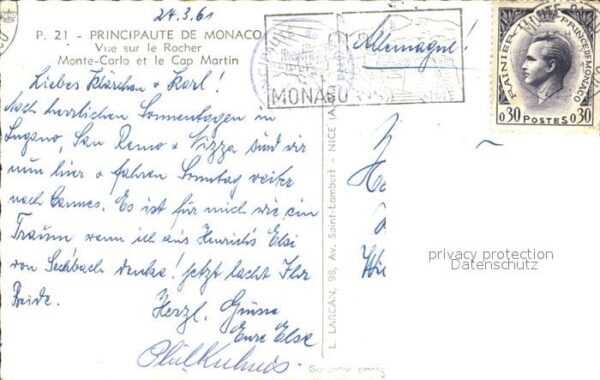 24.3.61
P. 21 - PRINCIPAUTE DE MONACO
Vue sur le Rocher
Monte-Carlo et le Cap Martin
Liebes Klärchen + Karl!
Nach herrlichen Sonnentagen in
Lugano, San Remo + Nizza sind wir
nun hier + fahren Sonntag weiter
nach Cannes. Es ist für mich wie ein
Traum, wenn ich aus Heinrich's Elsi
von Seckbach denke! Jetzt lacht Ihr
Beide.
Herzl. Grüsse
Eure Else
MONACO
Allemagne!
RAINIER III PRINCE DE MONACO
0,30 POSTES 0,30
L. LARCAN, 98, Av. Saint-Lambert - NICE (A.
privacy protection
Datenschutz